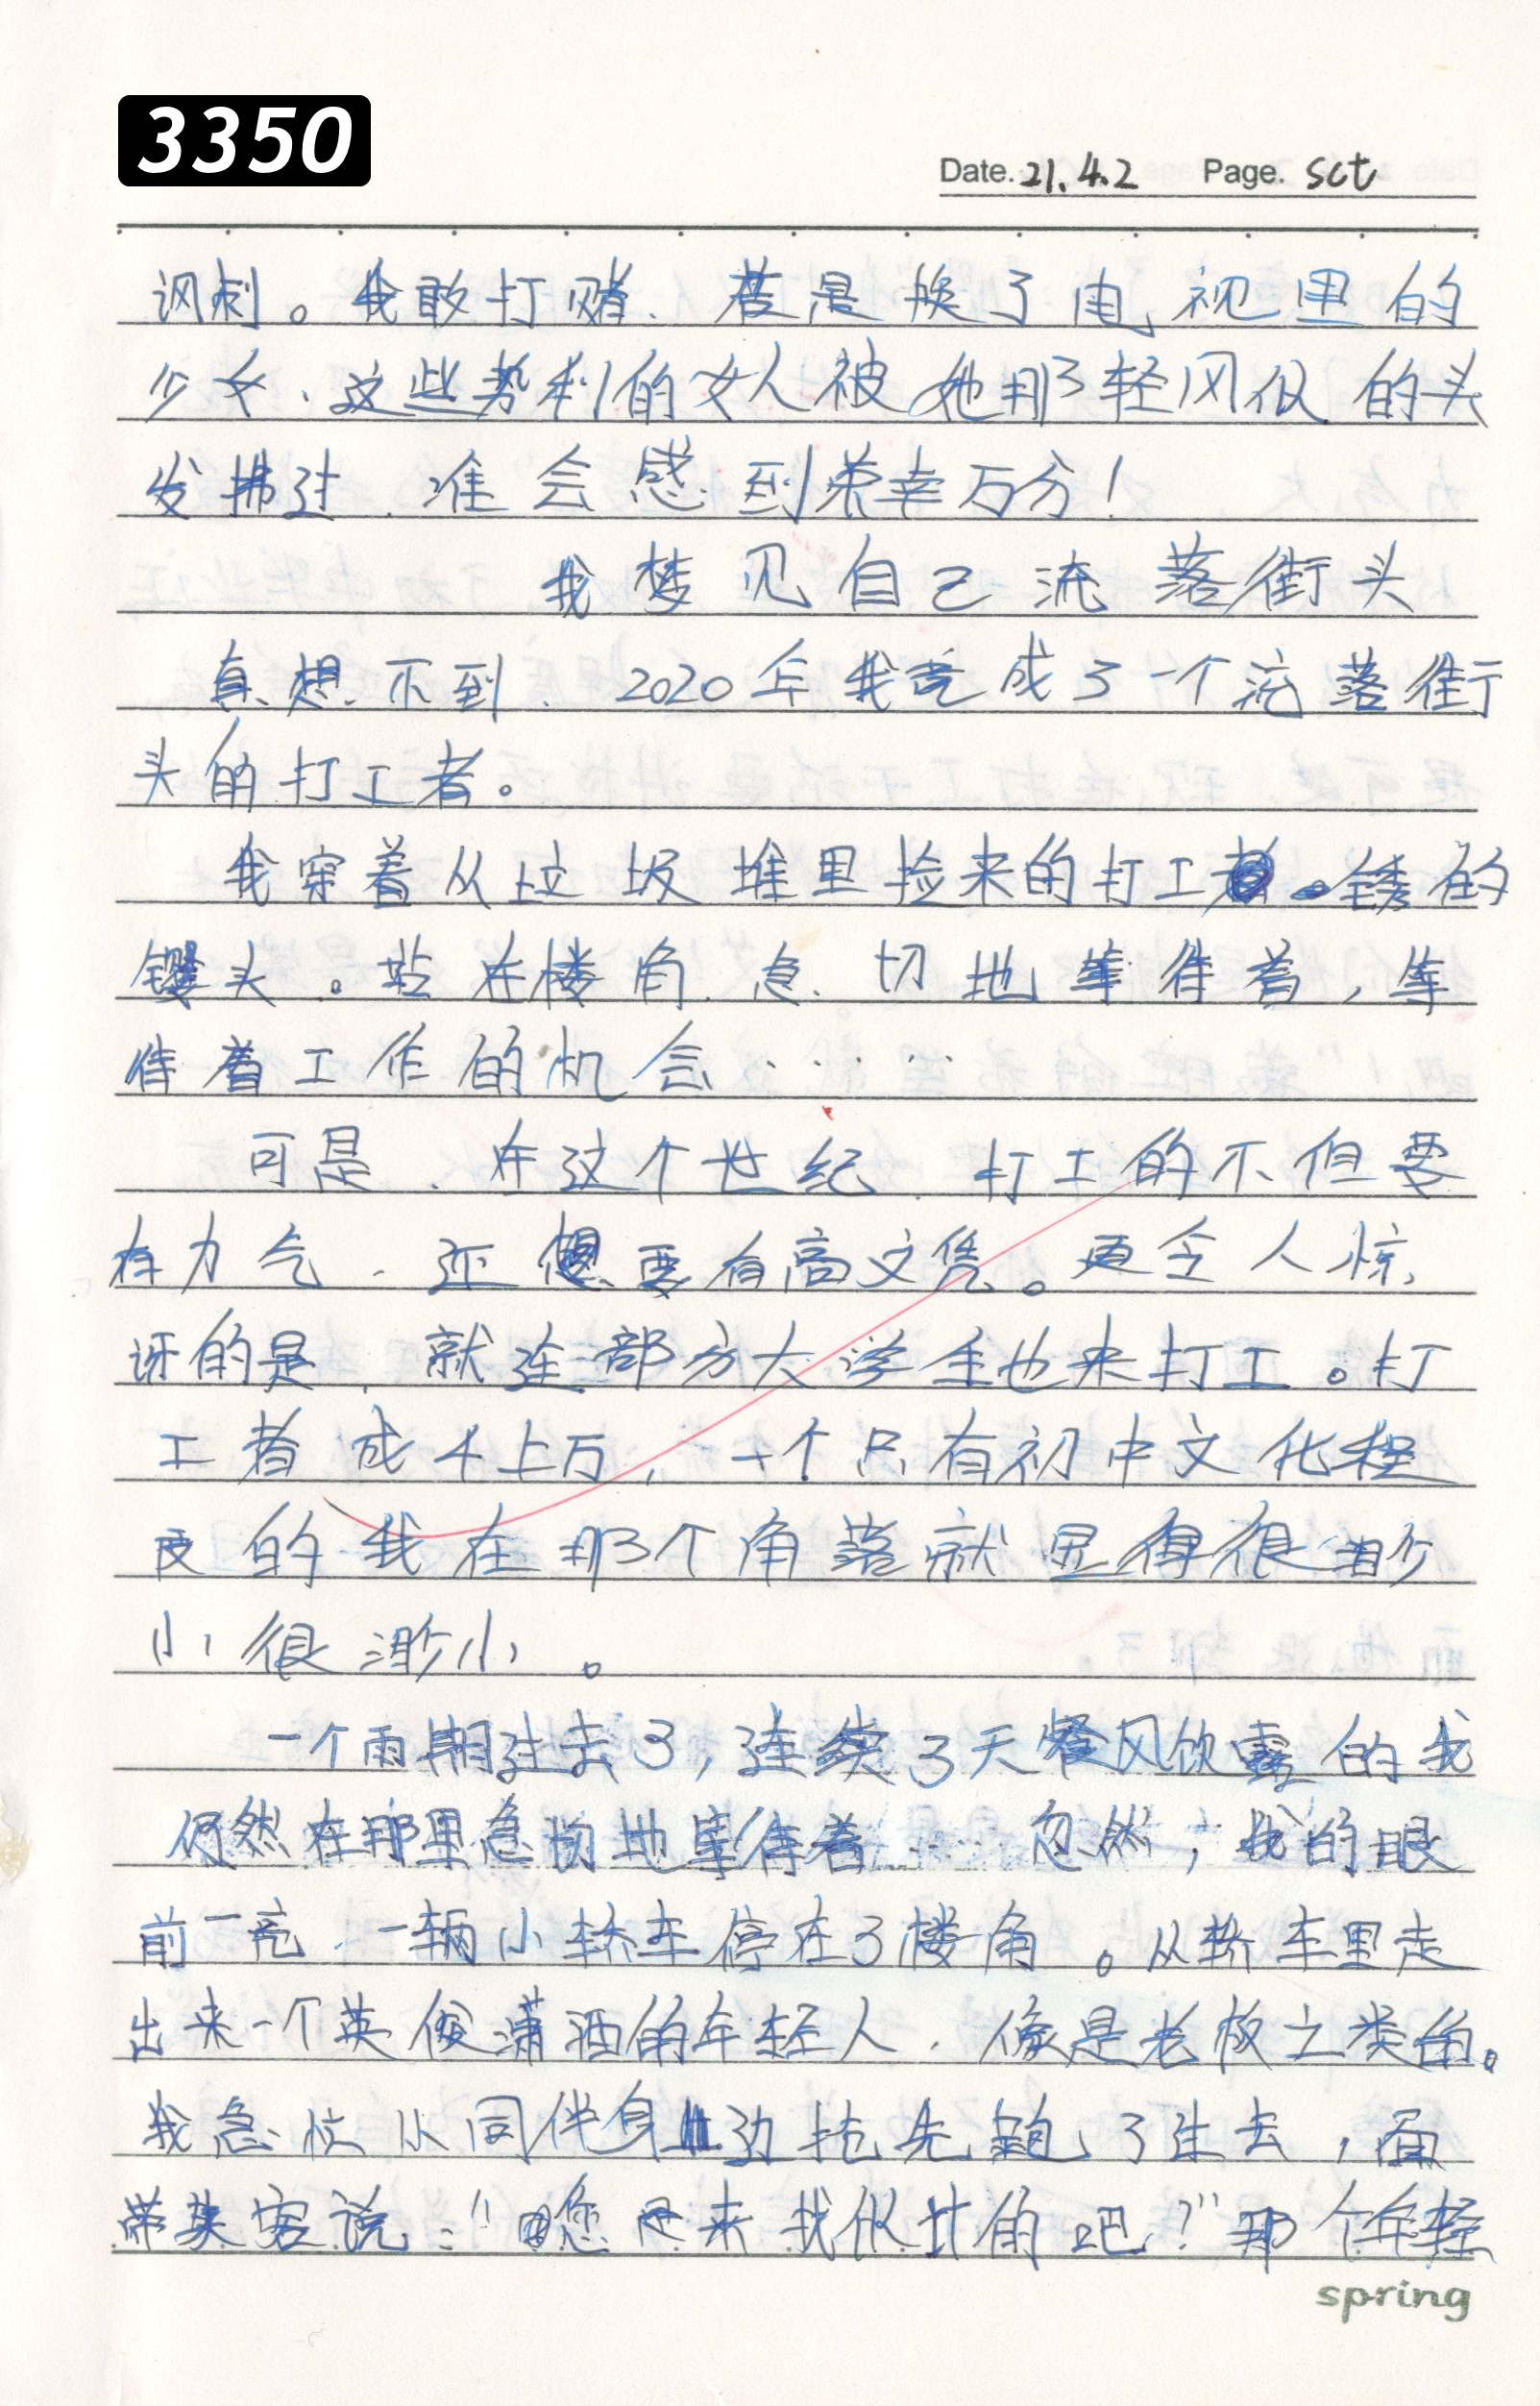 3350
Date. 21.4.2 Page. sct
讽刺。我敢打赌、若是换了电视里的
少女、这些势利的女人被她那轻风似的头
发拂过、准会感到荣幸万分！
我梦见自己流落街头
真想不到、2020年我竟成了一个流落街
头的打工者。
我穿着从垃圾堆里捡来的打工 锈的
镢头。站在楼角、急切地等待着，等
待着工作的机会······
可是、在这个世纪、打工的不但要
有力气、还要有高文凭。更令人惊
讶的是、就连部分大学生也来打工。打
工者成千上万，一个只有初中文化程
度的我在那个角落就显得很渺
小很渺小。
一个雨期过去了，连续3天餐风饮露的我
仍然在那里急切地等待着······忽然，我的眼
前一亮、一辆小轿车停在了楼角。从轿车里走
出来一个英俊潇洒的年轻人、像是老板之类的。
我急忙从同伴身边抢先跑了过去，面
带笑容说：“您是来找伙计的吧？”那个年轻
spring